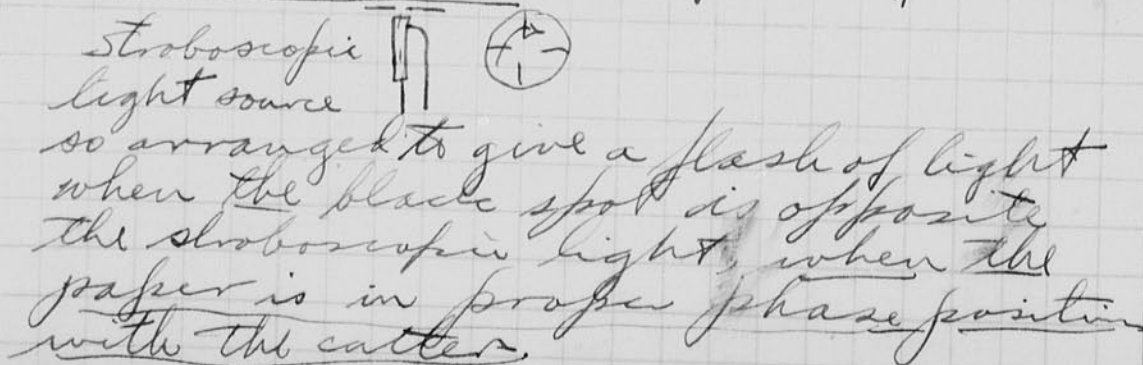 Stroboscopic
light source
so arranged to give a flash of light
when the black spot is opposite
the stroboscopic light, when the
paper is in proper phase position
with the cutter.